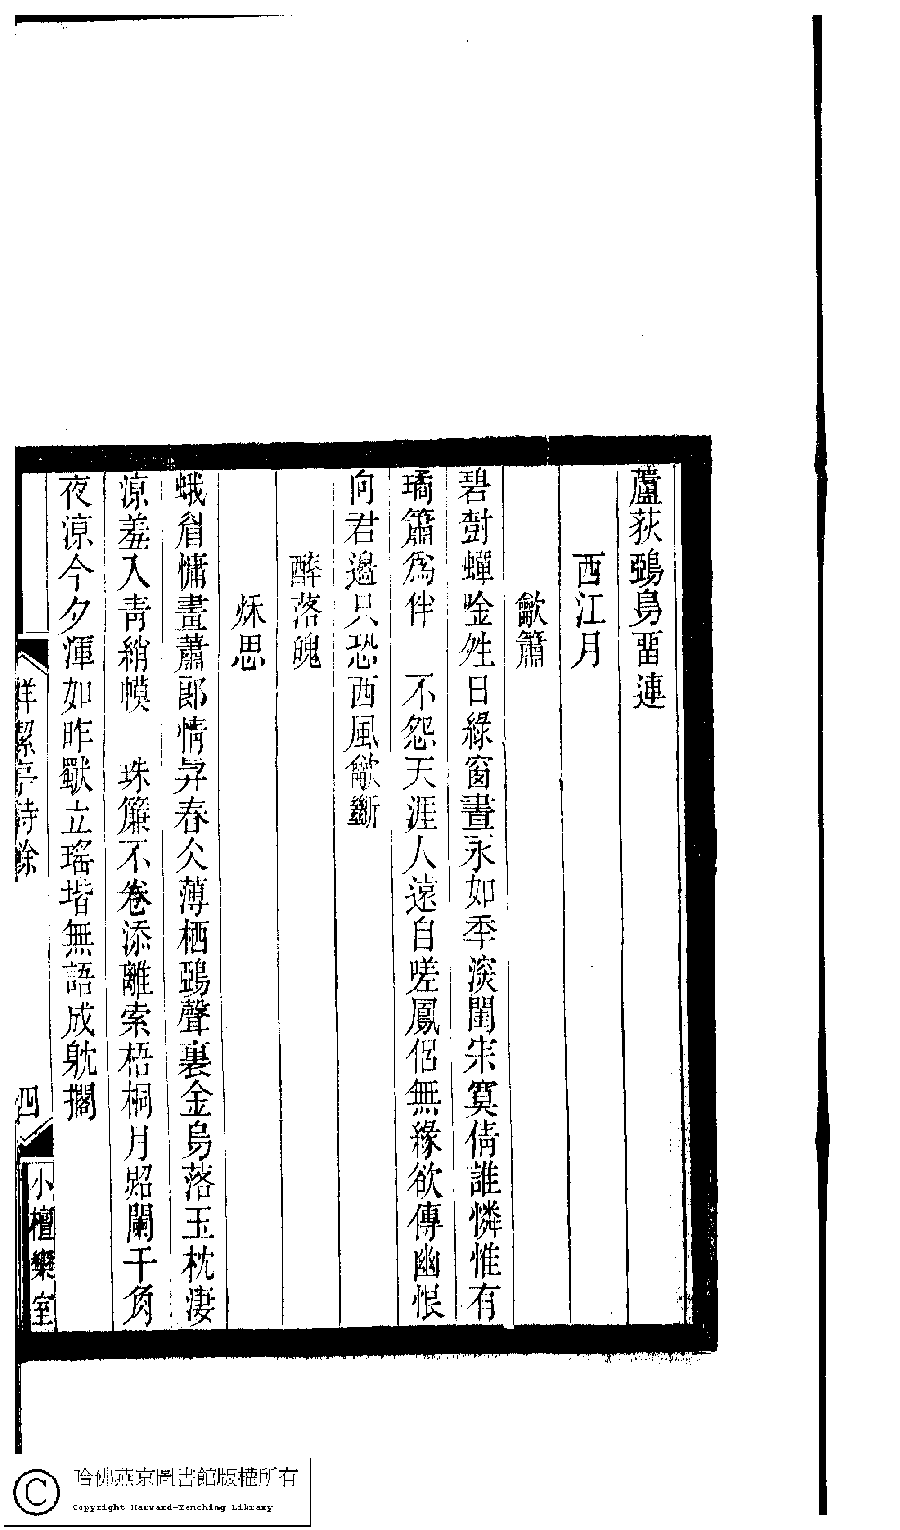 蘆荻鵶鳧畱連
西江月
歈簫
碧對蟬唫姓日綠窗晝永如秊深閨宋寞倩誰憐惟有
璚簫爲伴　不怨天涯人遠自嗟鳳侶無緣欲傳幽恨
向君邊只恐西風歈斷
醉落魄
秌思
蛾睂慵畫蕭郎情昇春仌薄栖鵶聲裏金烏落玉枕淒
涼羞入青綃幙　珠簾不卷添離索梧桐月炤闌干角
夜涼今夕渾如昨獸立瑤堦無語成躭擱
潔亭詩餘
四
小檀欒室
哈佛燕京圖書館版權所有
Copyright Harvard-Yenching Library